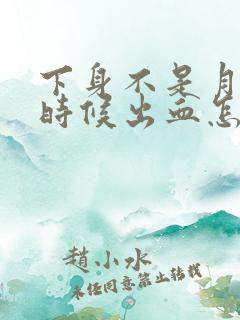 下身不是月
时候出血怎
赵小水
未经同意禁止转载